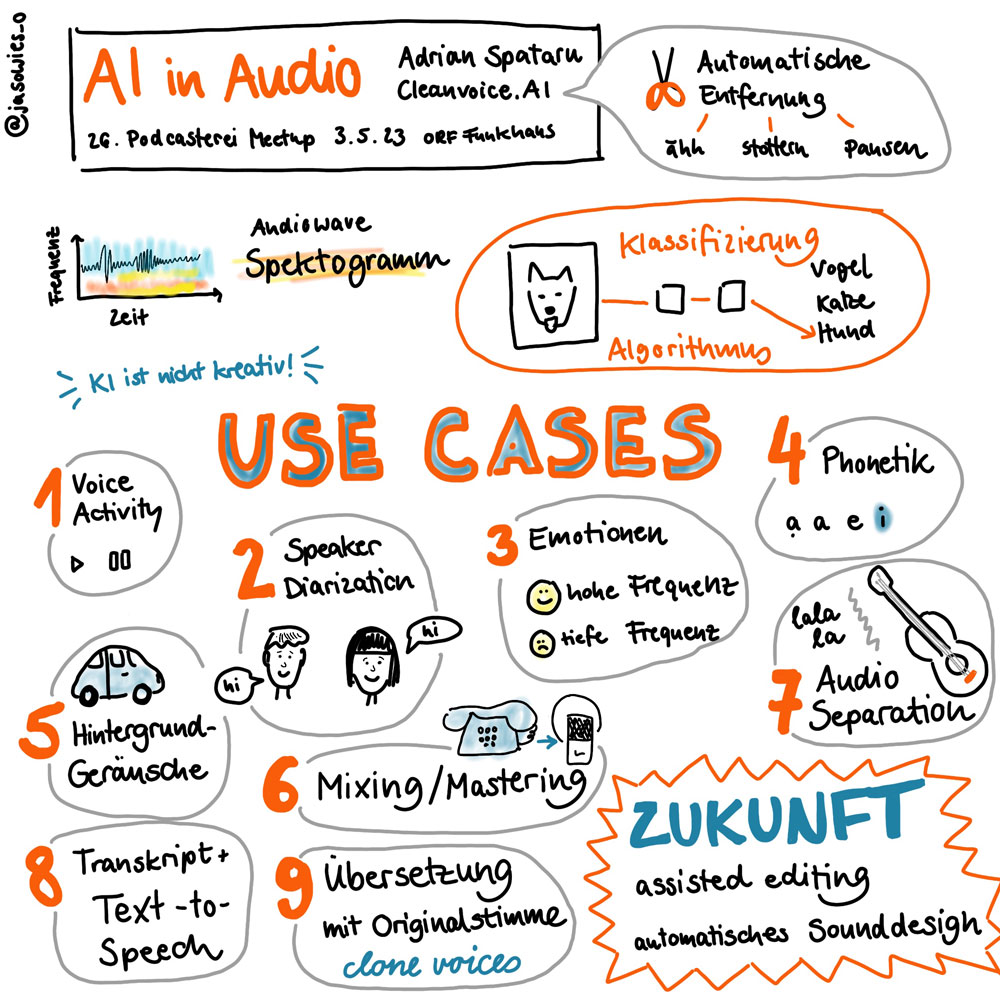 @jasowies_o
AI in Audio
Adrian Spataru
Cleanvoice.AI
26. Podcasterei Meetup 3.5.23 ORF Funkhaus
Automatische
Entfernung
ähh stottern Pausen
Frequenz
Zeit
Audiowave
Spektogramm
Klassifizierung
Vogel
Katze
Hund
Algorithmus
KI ist nicht kreativ!
USE CASES
1 Voice
Activity
2 Speaker
Diarization
hi
hi
3 Emotionen
hohe Frequenz
tiefe Frequenz
4 Phonetik
ạ a e i
5 Hintergrund-
Geräusche
6 Mixing/Mastering
lala
la
7 Audio
Separation
8 Transkript +
Text-to-
Speech
9 Übersetzung
mit Originalstimme
clone voices
ZUKUNFT
assisted editing
automatisches Sounddesign